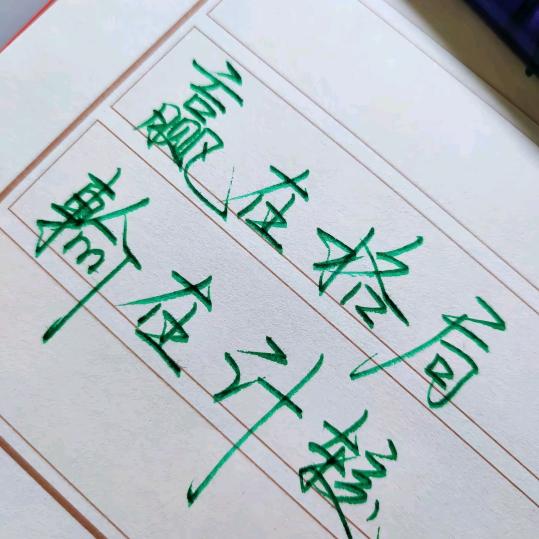 赢在格局
輸在计较